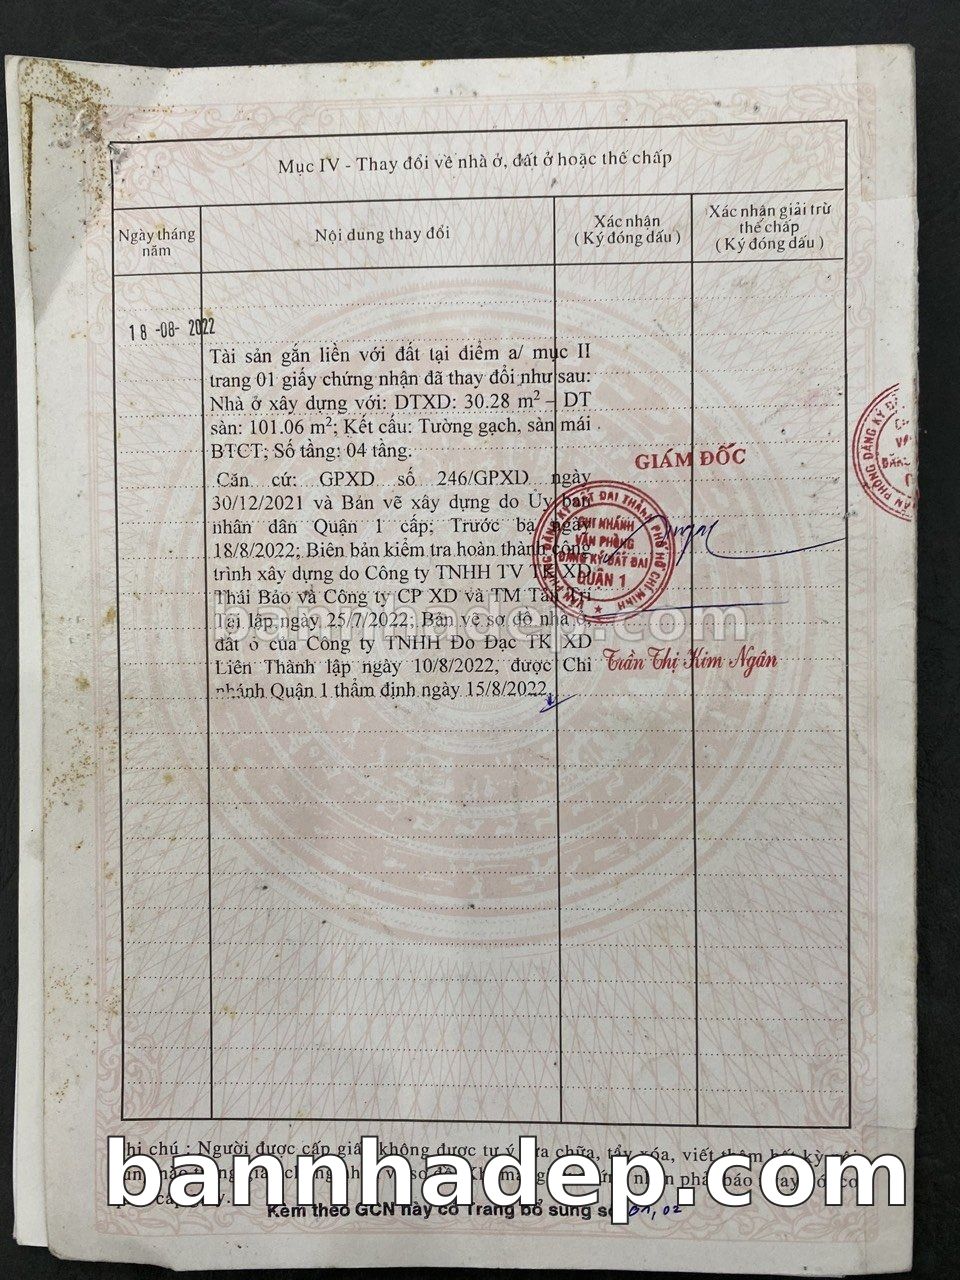 Mục IV - Thay đổi về nhà ở, đất ở hoặc thế chấp
Ngày tháng năm
Nội dung thay đổi
Xác nhận
( Ký đóng dấu )
Xác nhận giải trừ thế chấp
( Ký đóng dấu )
18 -08- 2022
Tài sản gắn liền với đất tại điểm a/ mục II
trang 01 giấy chứng nhận đã thay đổi như sau:
Nhà ở xây dựng với: DTXD: 30.28 m² – DT
sàn: 101.06 m²; Kết cấu: Tường gạch, sàn mái
BTCT; Số tầng: 04 tầng.
Căn cứ: GPXD số 246/GPXD ngày
30/12/2021 và Bản vẽ xây dựng do Ủy ban
nhân dân Quận 1 cấp; Trước bạ ngày
18/8/2022; Biên bản kiểm tra hoàn thành công
trình xây dựng do Công ty TNHH TV TK XD
Thái Bảo và Công ty CP XD và TM Tân Trí
Tài lập ngày 25/7/2022; Bản vẽ sơ đồ nhà ở,
đất ở của Công ty TNHH Đo Đạc TK XD
Liên Thành lập ngày 10/8/2022, được Chi
nhánh Quận 1 thẩm định ngày 15/8/2022.
GIÁM ĐỐC
VĂN PHÒNG ĐĂNG KÝ ĐẤT ĐAI THÀNH PHỐ HỒ CHÍ MINH
CHI NHÁNH
VĂN PHÒNG
ĐĂNG KÝ ĐẤT ĐAI
QUẬN 1
Trần Thị Kim Ngân
PHÒNG ĐĂNG KÝ
bannhadep.com
chú : Người được cấp giấy không được tự ý sửa chữa, tẩy xóa, viết thêm bất kỳ
bannhadep.com
Kèm theo GCN này có Trang bổ sung số 01, 02